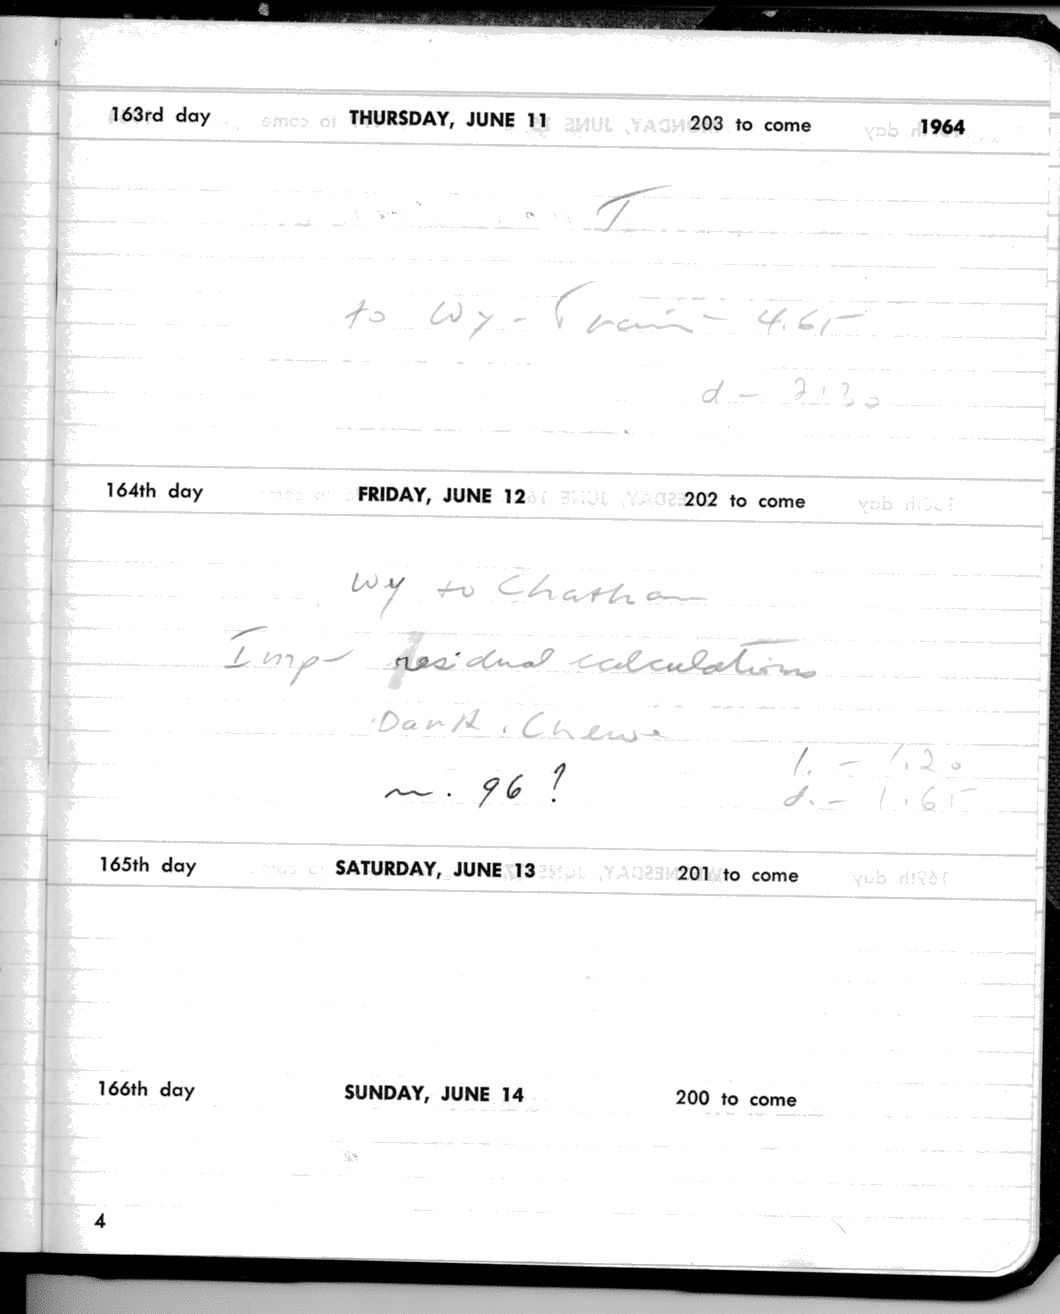 163rd day THURSDAY, JUNE 11 203 to come 1964
T
to Wy - Train - 4.65
d - 2:30
164th day FRIDAY, JUNE 12 202 to come
Wy to Chatham
Imp residual calculations
Dan A. Chew
m. 96?
l. - 1.20
d. - 1.65
165th day SATURDAY, JUNE 13 201 to come
166th day SUNDAY, JUNE 14 200 to come
4